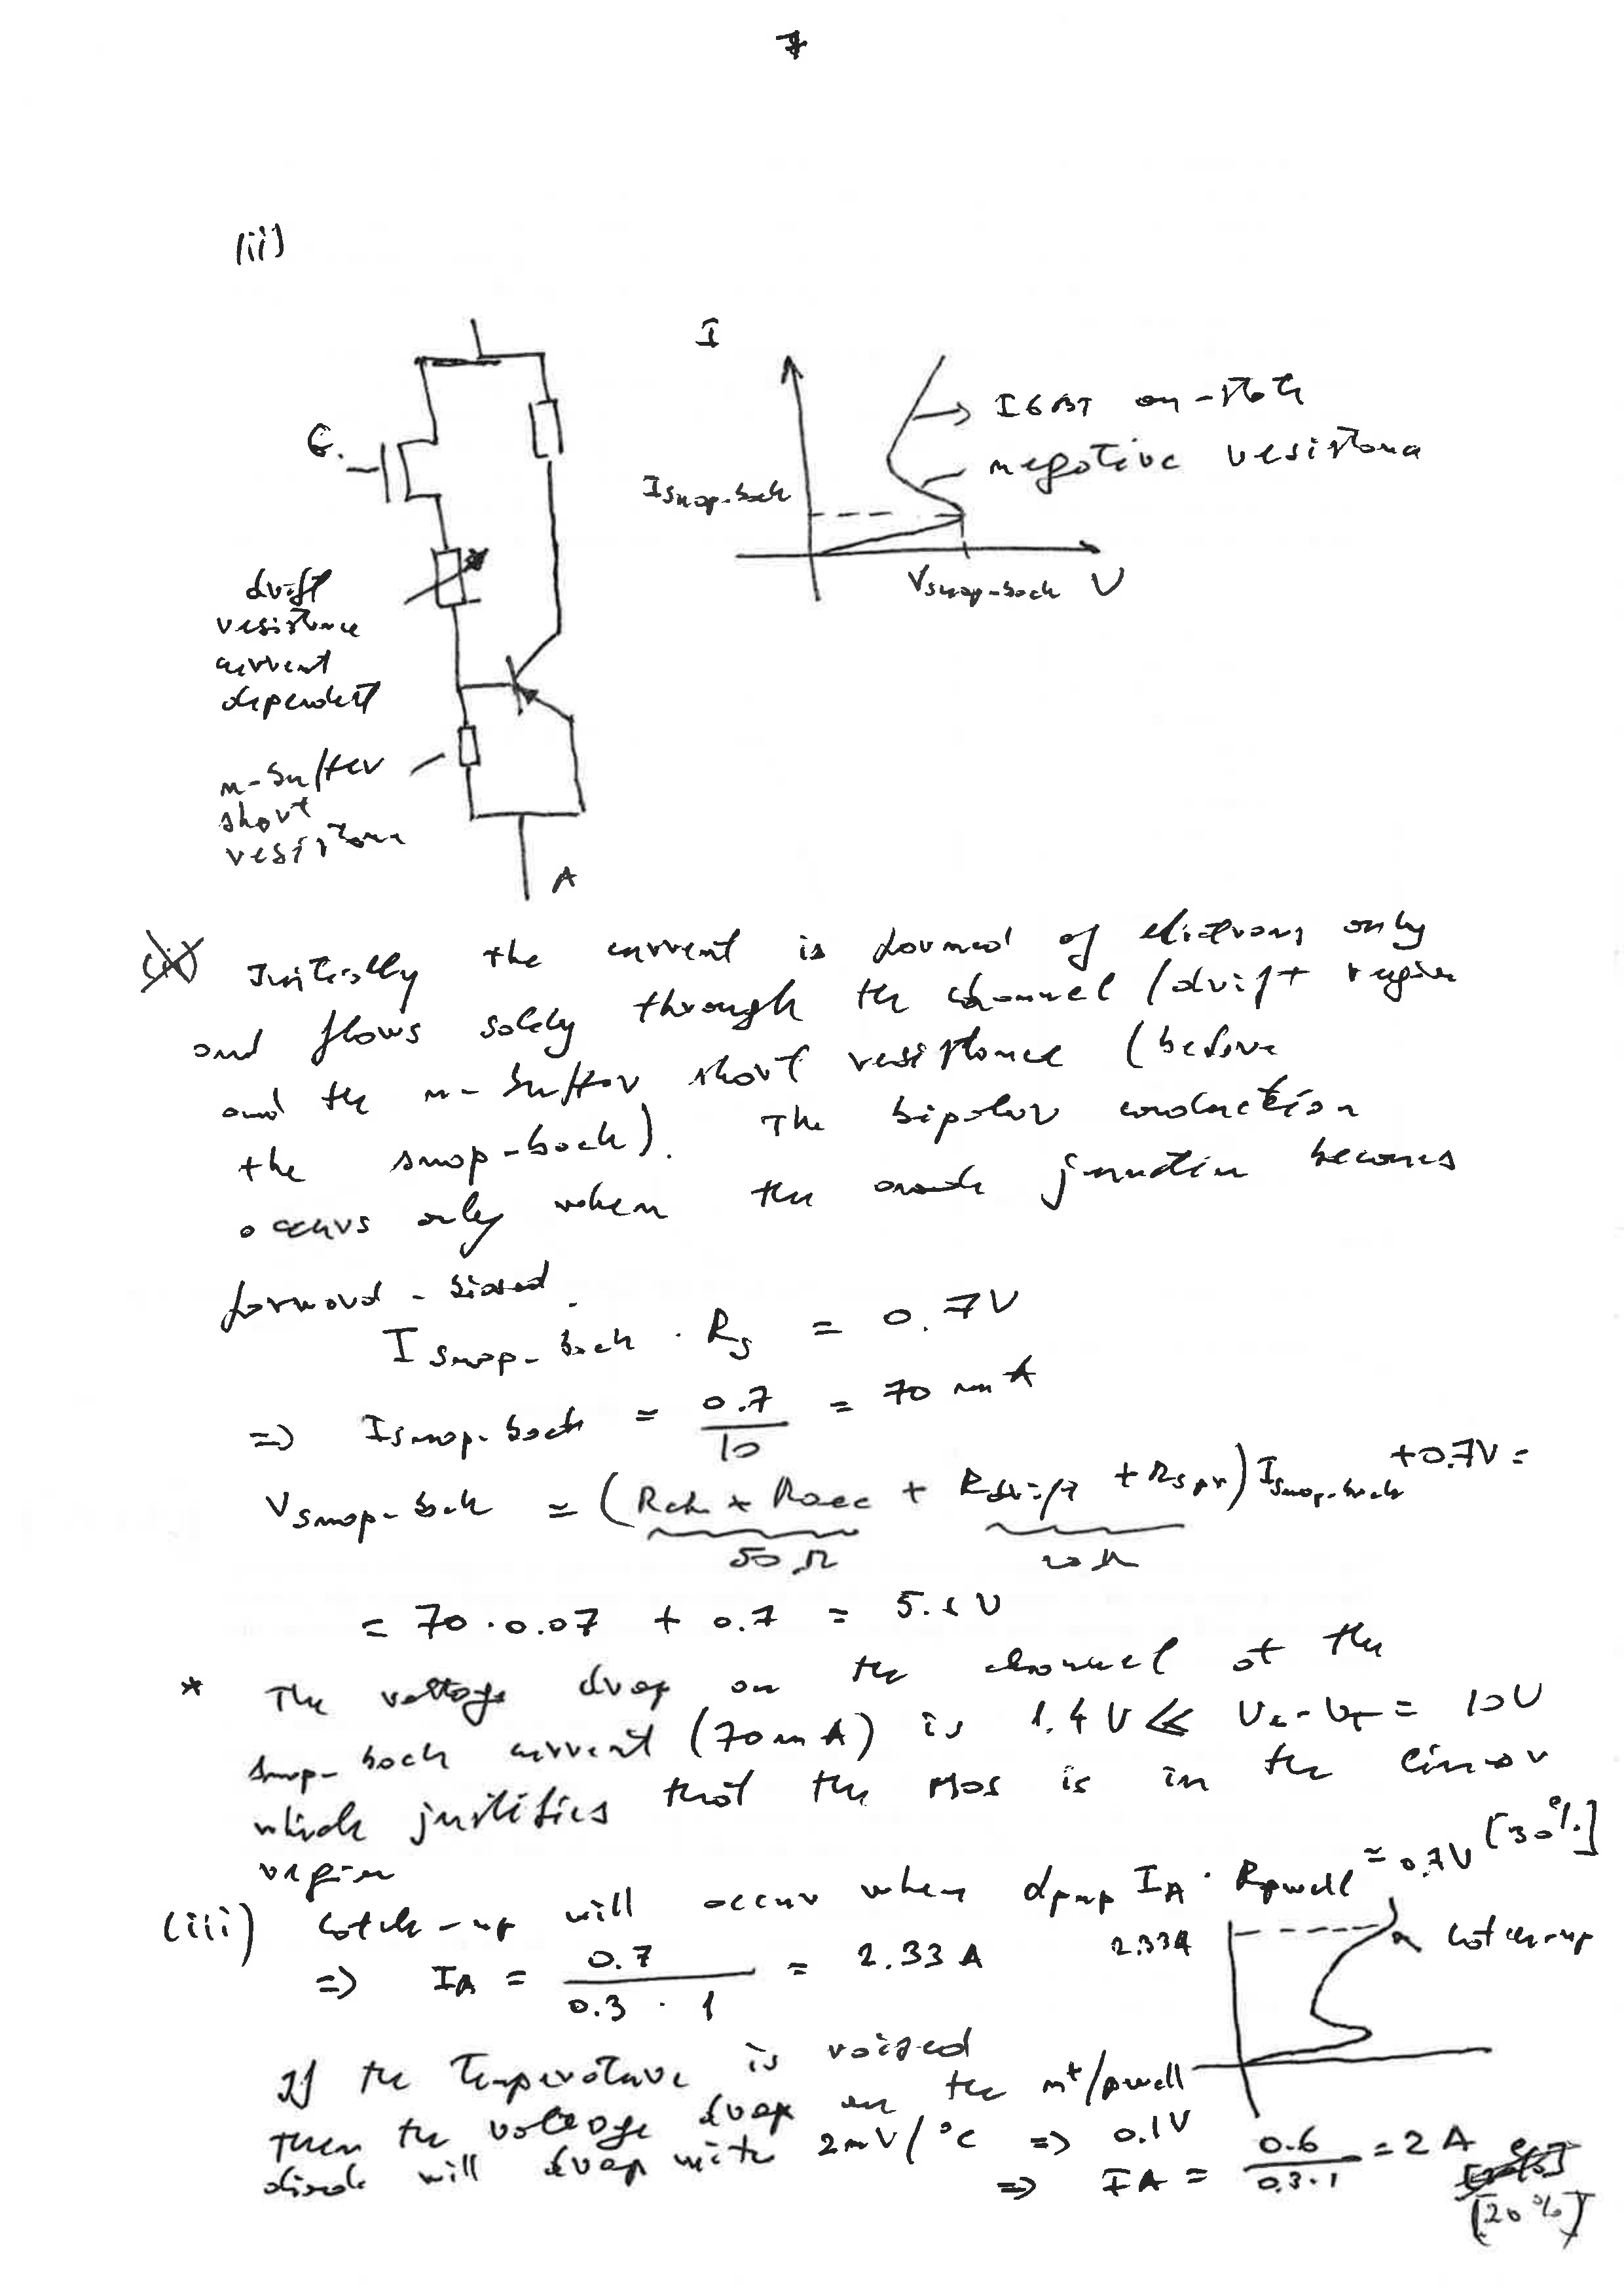 7
(ii)
I
G.
IGBT on-state
negative resistance
Isnap-back
Vsnap-back V
drift
resistance
current
dependent
n-buffer
short
resistance
A
Initially the current is formed of electrons only
and flows solely through the channel / drift region
and the n-buffer short resistance (before
the snap-back). The bipolar conduction
occurs only when the anode junction becomes
forward-biased.
Isnap-back · Rs = 0.7V
=> Isnap-back = 0.7/10 = 70 mA
Vsnap-back = (Rch + Racc + Rdrift + Rspr) Isnap-back + 0.7V =
50 Ω 20 Ω
= 70 · 0.07 + 0.7 = 5.6 V
* The voltage drop on the channel at the
snap-back current (70mA) is 1.4V << VG - VT = 10V
which justifies that the MOS is in the linear
region [30%]
(iii) Latch-up will occur when αpnp IA · Rpwell = 0.7V
=> IA = 0.7/(0.3 · 1) = 2.33 A
2.33A
latch-up
If the temperature is raised
then the voltage drop on the n+/pwell
diode will drop with 2mV/°C => 0.1V
=> IA = 0.6/(0.3·1) = 2A
[20%]